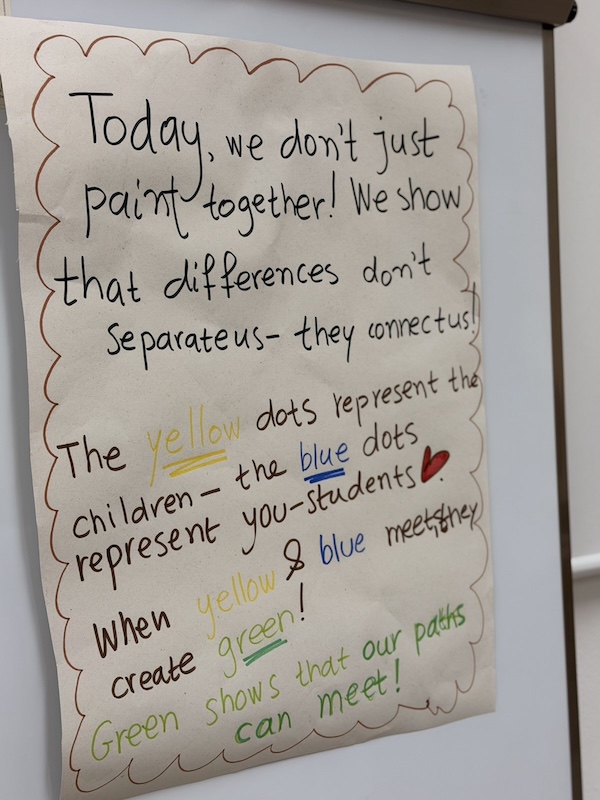 Today, we don't just
paint together! We show
that differences don't
separate us - they connect us!
The yellow dots represent the
children - the blue dots
represent you - students.
When yellow & blue meet, they
create green!
Green shows that our paths
can meet!